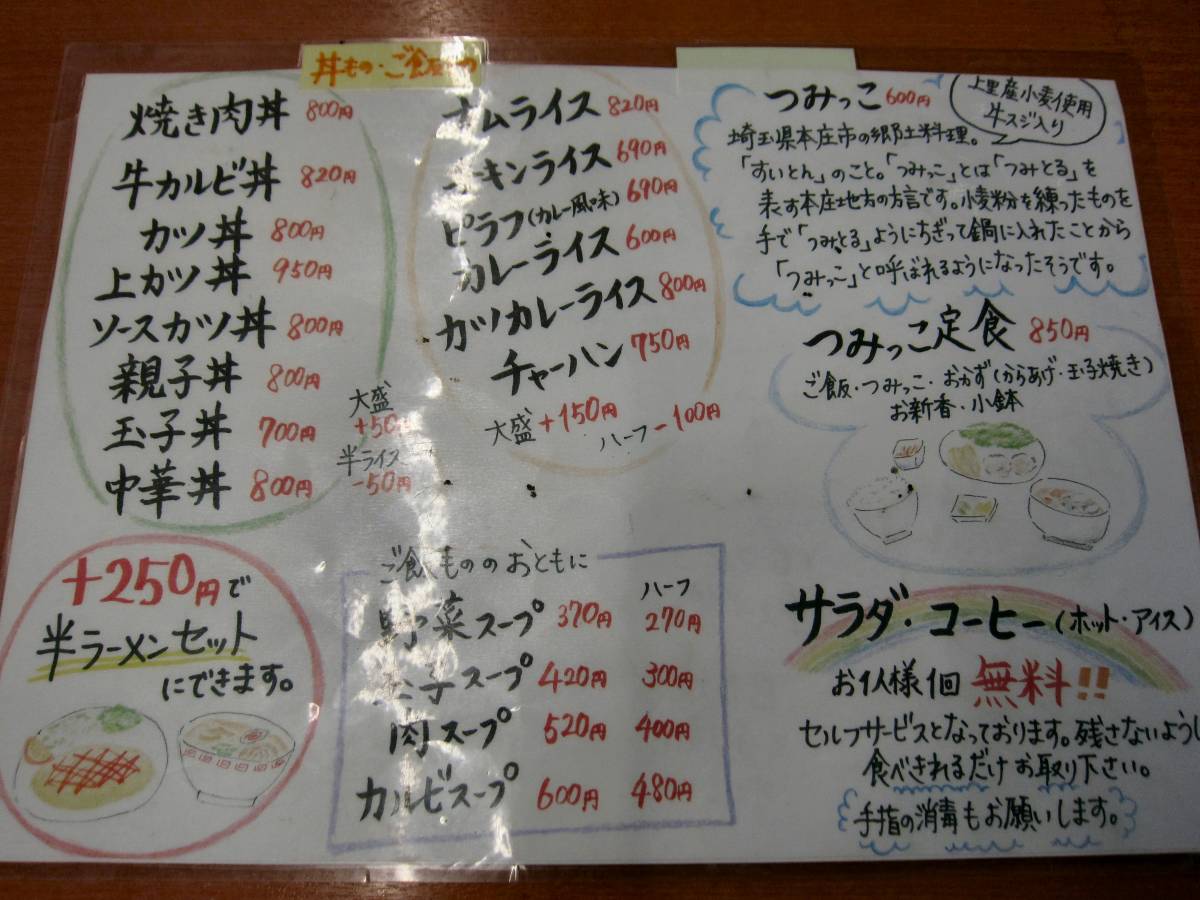 丼もの・ご飯もの
焼き肉丼 800円
牛カルビ丼 820円
カツ丼 800円
上カツ丼 950円
ソースカツ丼 800円
親子丼 800円
玉子丼 700円
中華丼 800円
大盛
+50円
半ライス
-50円
オムライス 820円
チキンライス 690円
ピラフ(カレー風味) 690円
カレーライス 600円
カツカレーライス 800円
チャーハン 750円
大盛 +150円
ハーフ -100円
+250円で
半ラーメンセット
にできます。
ご飯もののおともに
ハーフ
野菜スープ 370円 270円
玉子スープ 420円 300円
肉スープ 520円 400円
カルビスープ 600円 480円
つみっこ 600円
上里産小麦使用
牛スジ入り
埼玉県本庄市の郷土料理。
「すいとん」のこと。「つみっこ」とは「つみとる」を
表す本庄地方の方言です。小麦粉を練ったものを
手で「つみとる」ようにちぎって鍋に入れたことから
「つみっこ」と呼ばれるようになったそうです。
つみっこ定食 850円
ご飯・つみっこ・おかず(からあげ・玉子焼き)
お新香・小鉢
サラダ・コーヒー(ホット・アイス)
お1人様1回 無料!!
セルフサービスとなっております。残さないように
食べきれるだけお取り下さい。
手指の消毒もお願いします。